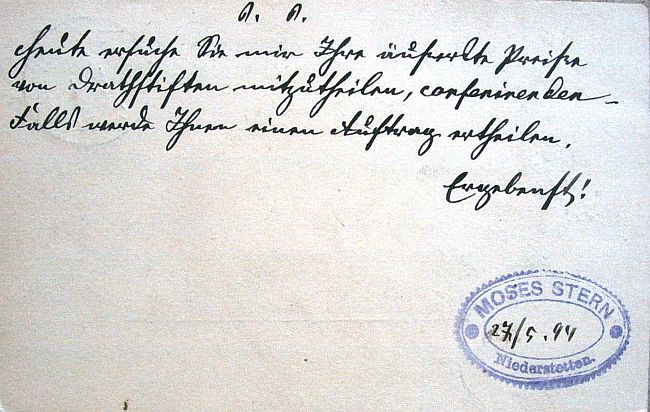 P. P.
Heute ersuche Sie mir Ihre äußerste Preiße
von Drathstiften mitzutheilen, convenirenden-
Falls werde Ihnen einen Auftrag ertheilen.
Ergebenst!
MOSES STERN
27/5.94
Niederstetten.